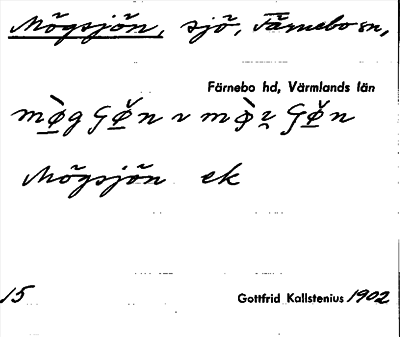 Mögsjön, sjö, Färnebo sn,
Färnebo hd, Värmlands län
Mögsjön ek
15 Gottfrid Kallstenius 1902